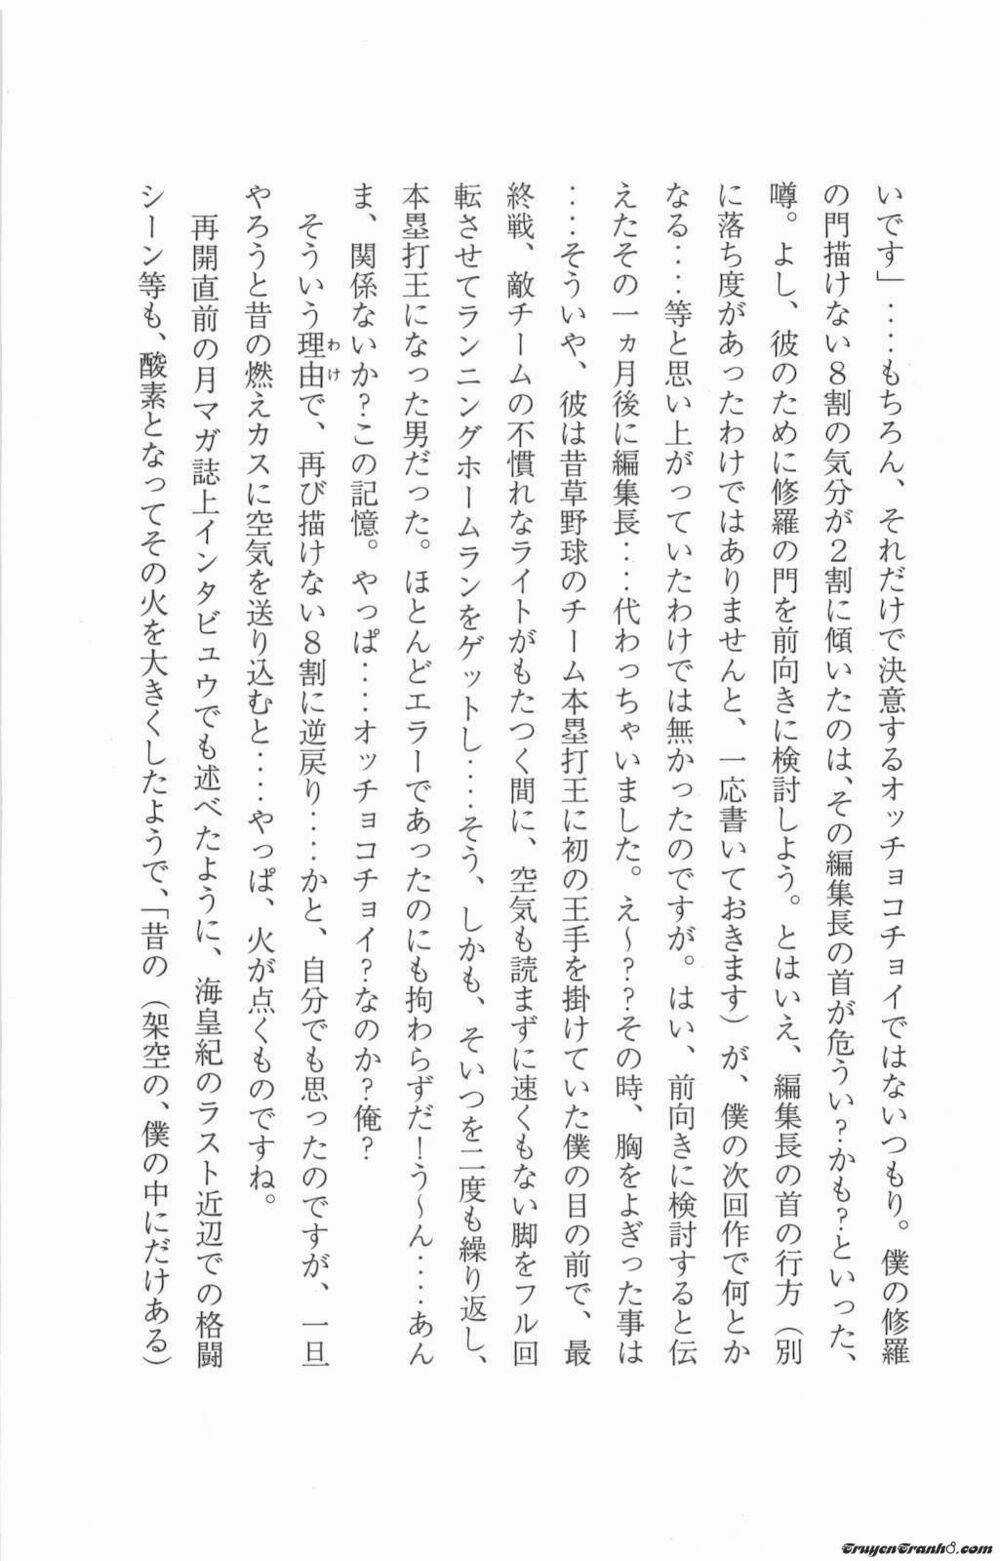 いです」‥‥もちろん、それだけで決意するオッチョコチョイではないつもり。僕の修羅
の門描けない８割の気分が２割に傾いたのは、その編集長の首が危うい？かも？といった、
噂。よし、彼のために修羅の門を前向きに検討しよう。とはいえ、編集長の首の行方（別
に落ち度があったわけではありませんと、一応書いておきます）が、僕の次回作で何とか
なる‥‥等と思い上がっていたわけでは無かったのですが。はい、前向きに検討すると伝
えたその一ヵ月後に編集長‥‥代わっちゃいました。え〜？？その時、胸をよぎった事は
‥‥そういや、彼は昔草野球のチーム本塁打王に初の王手を掛けていた僕の目の前で、最
終戦、敵チームの不慣れなライトがもたつく間に、空気も読まずに速くもない脚をフル回
転させてランニングホームランをゲットし‥‥そう、しかも、そいつを二度も繰り返し、
本塁打王になった男だった。ほとんどエラーであったのにも拘わらずだ！う〜ん‥‥あん
ま、関係ないか？この記憶。やっぱ‥‥オッチョコチョイ？なのか？俺？
そういう理由で、再び描けない８割に逆戻り‥‥かと、自分でも思ったのですが、一旦
わけ
やろうと昔の燃えカスに空気を送り込むと‥‥やっぱ、火が点くものですね。
再開直前の月マガ誌上インタビュウでも述べたように、海皇紀のラスト近辺での格闘
シーン等も、酸素となってその火を大きくしたようで、「昔の（架空の、僕の中にだけある）
TruyenTranh8.com